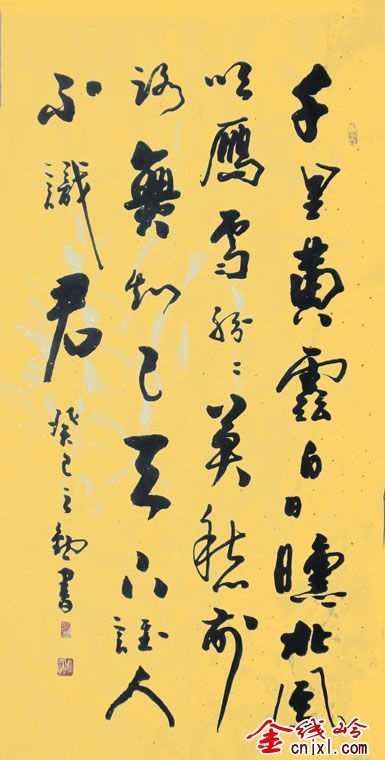 千里黄雲白日曛北風
吹鴈雪紛々莫愁前
路無知己天下誰人
不識君
癸巳書
金线岭
cnjxl.com